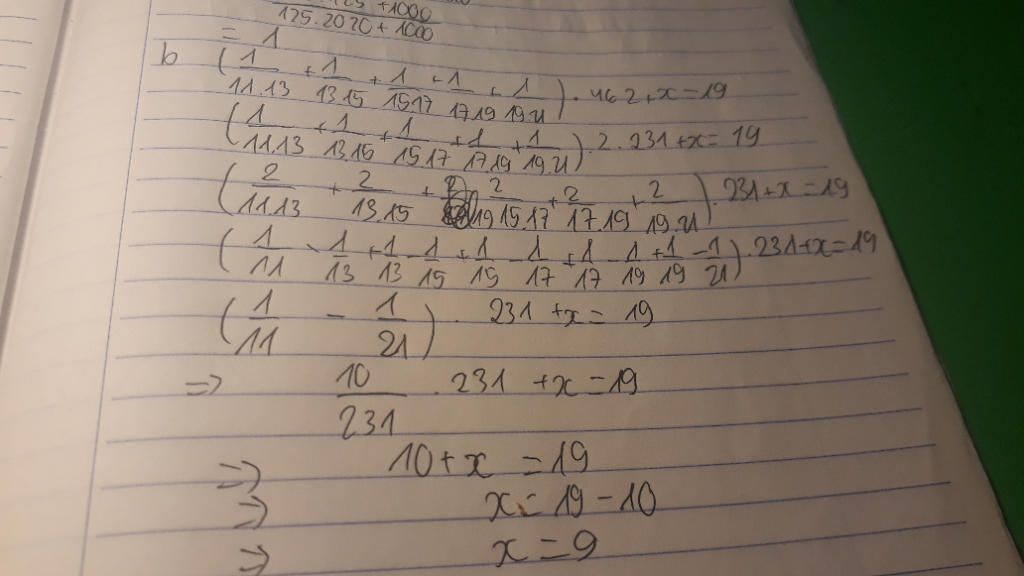 125 +1000
125.2020+1000
= 1
b (1/11.13 + 1/13.15 + 1/15.17 + 1/17.19 + 1/19.21) . 462 + x = 19
(1/11.13 + 1/13.15 + 1/15.17 + 1/17.19 + 1/19.21) . 2 . 231 + x = 19
(2/11.13 + 2/13.15 + 2/15.17 + 2/17.19 + 2/19.21) . 231 + x = 19
(1/11 - 1/13 + 1/13 - 1/15 + 1/15 - 1/17 + 1/17 - 1/19 + 1/19 - 1/21) . 231 + x = 19
(1/11 - 1/21) . 231 + x = 19
=> 10/231 . 231 + x = 19
=> 10 + x = 19
=> x = 19 - 10
=> x = 9